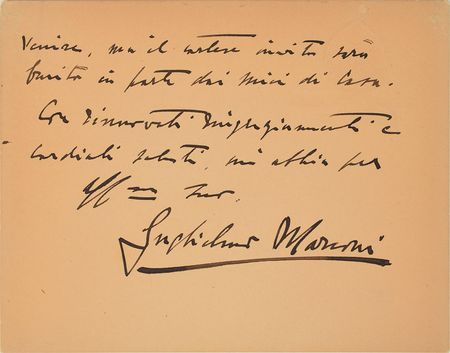 venire, ma il cortese invito sarà
fruito in parte dai miei di Casa.
Con rinnovati ringraziamenti e
cordiali saluti, mi abbia per
Aff mo suo.
Guglielmo Marconi